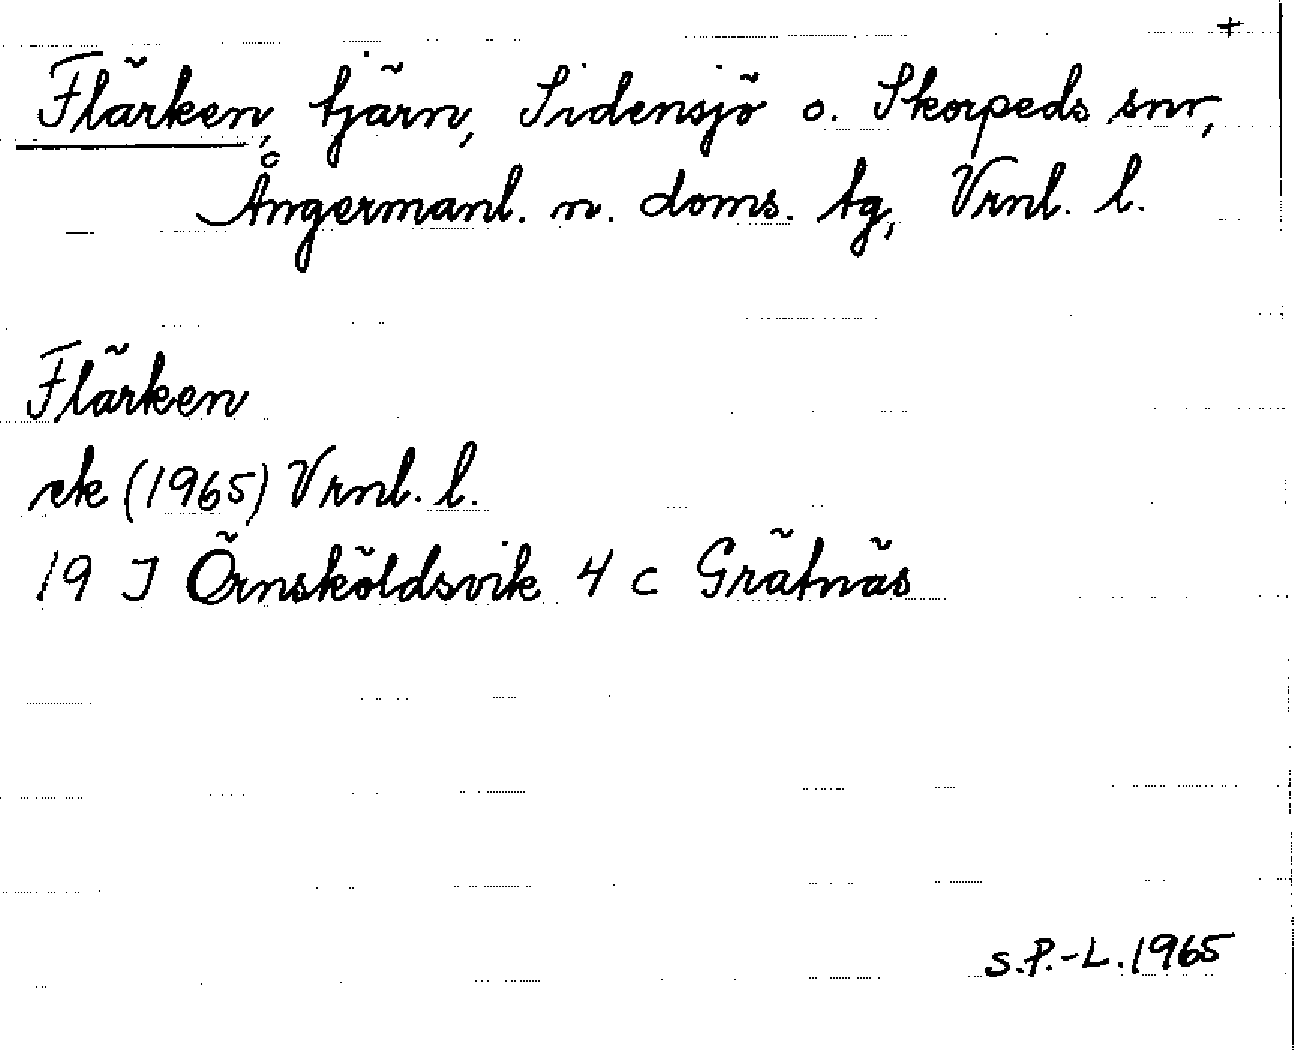 +
Flärken, tjärn, Sidensjö o. Skorpeds snr,
Ångermanl. n. doms. tg, Vrnl. l.
Flärken
ek (1965) Vrnl. l.
19 J Örnsköldsvik 4 c Grätnäs
S.P.-L. 1965